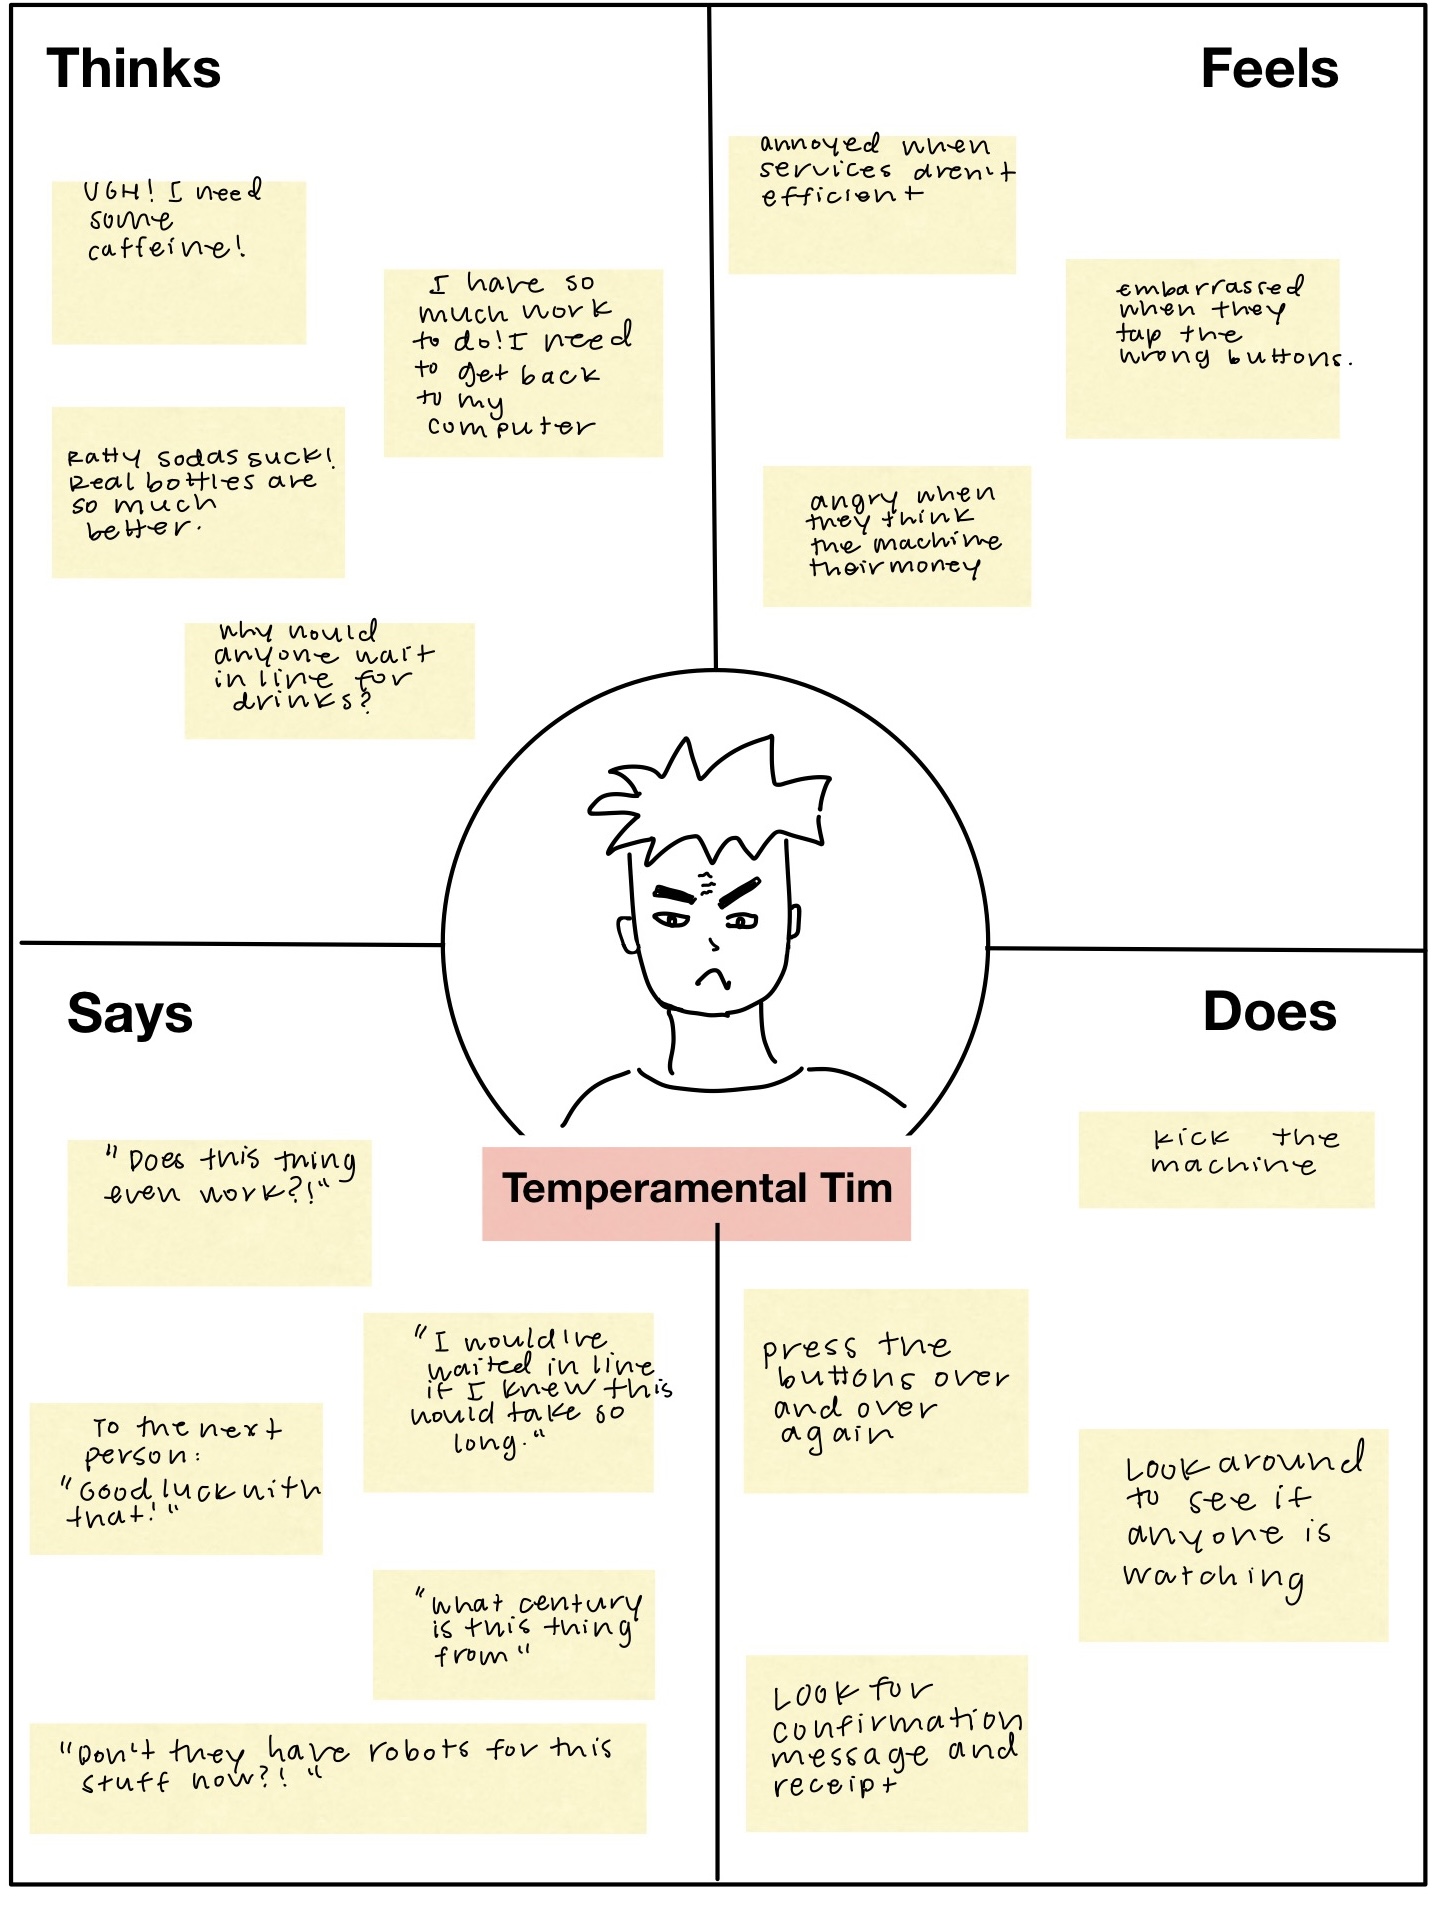 Thinks
UGH! I need
some
caffeine!
I have so
much work
to do! I need
to get back
to my
computer
Ratty sodas suck!
Real bottles are
so much
better.
why would
anyone wait
in line for
drinks?
Feels
annoyed when
services aren't
efficient
embarrassed
when they
tap the
wrong buttons.
angry when
they think
the machine
their money
Temperamental Tim
Says
"Does this thing
even work?!"
"I would've
waited in line
if I knew this
would take so
long."
To the next
person:
"Good luck with
that!"
"what century
is this thing
from"
"Don't they have robots for this
stuff now?!"
Does
kick the
machine
press the
buttons over
and over
again
Look around
to see if
anyone is
watching
Look for
confirmation
message and
receipt